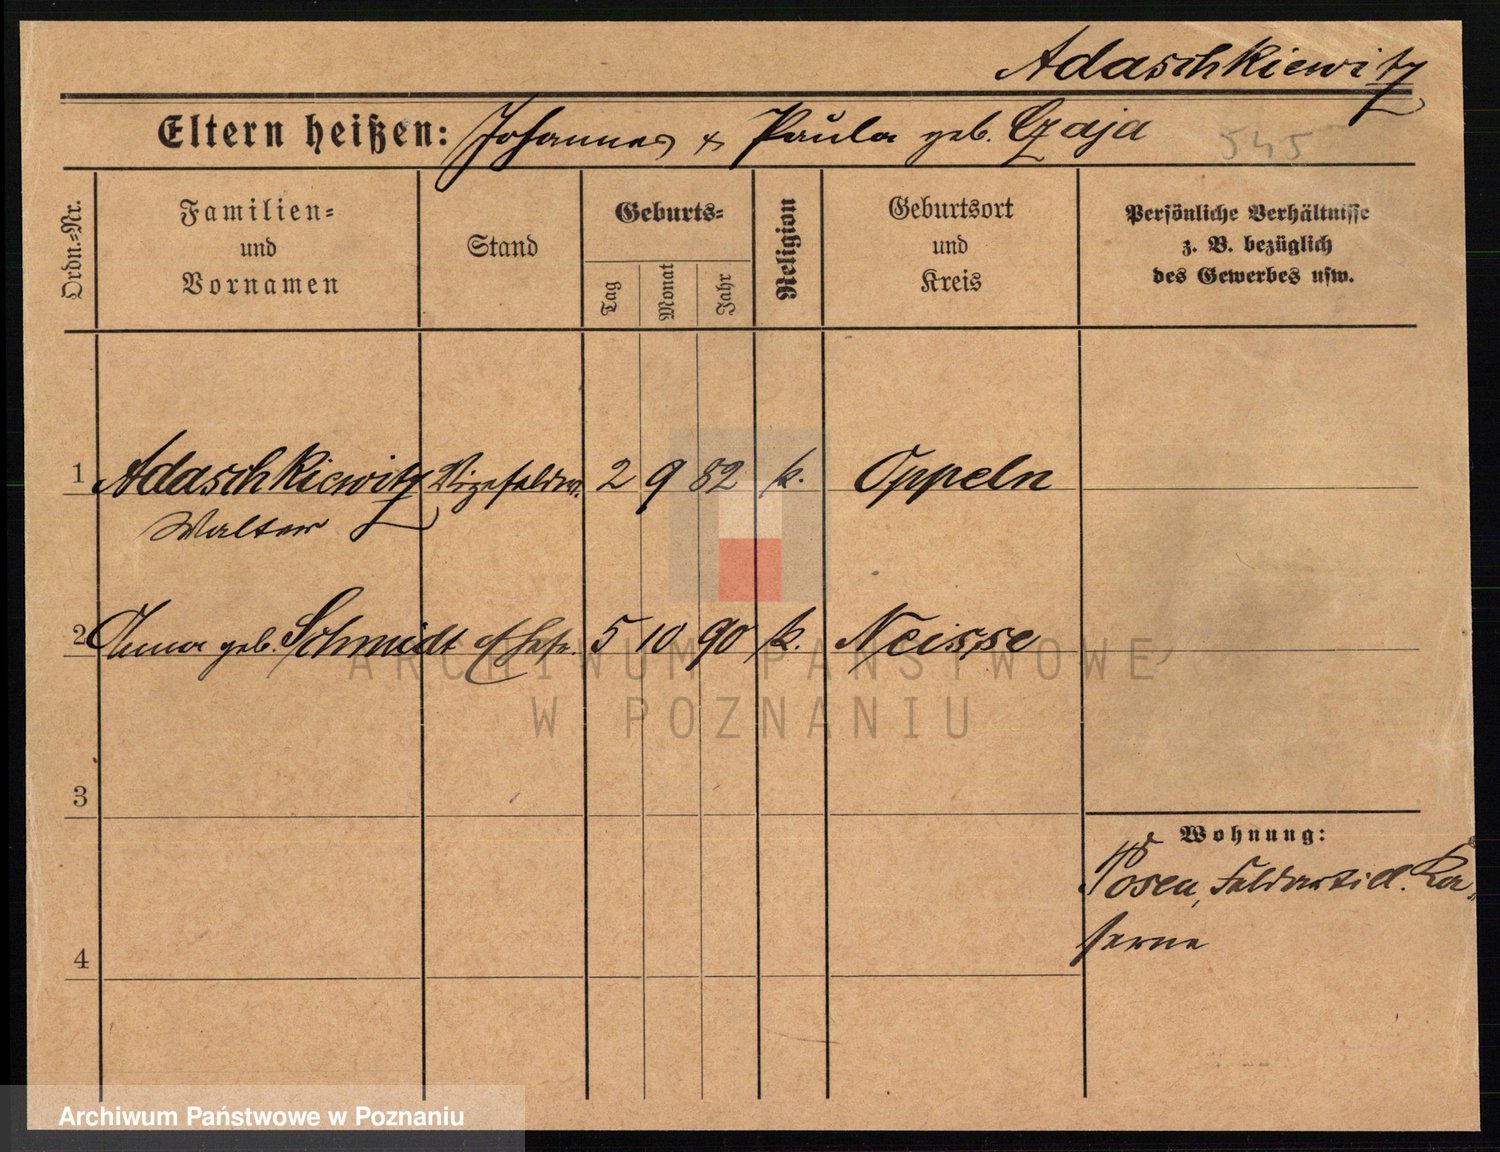 Adaschkiewitz
Eltern heißen: Johannes & Paula geb. Czaja 545
Ordn.=Nr.
Familien=
und
Vornamen
Stand
Geburts=
Tag
Monat
Jahr
Religion
Geburtsort
und
Kreis
Persönliche Verhältnisse
z. B. bezüglich
des Gewerbes usw.
1 Adaschkiewitz Vizefeldw. 2 9 82 k. Oppeln
Walter
2 Anna geb. Schmidt Ehefr. 5 10 90 k. Neisse
ARCHIWUM PAŃSTWOWE
W POZNANIU
3
Wohnung:
Posen, Feldartill. Ka-
serne
4
Archiwum Państwowe w Poznaniu